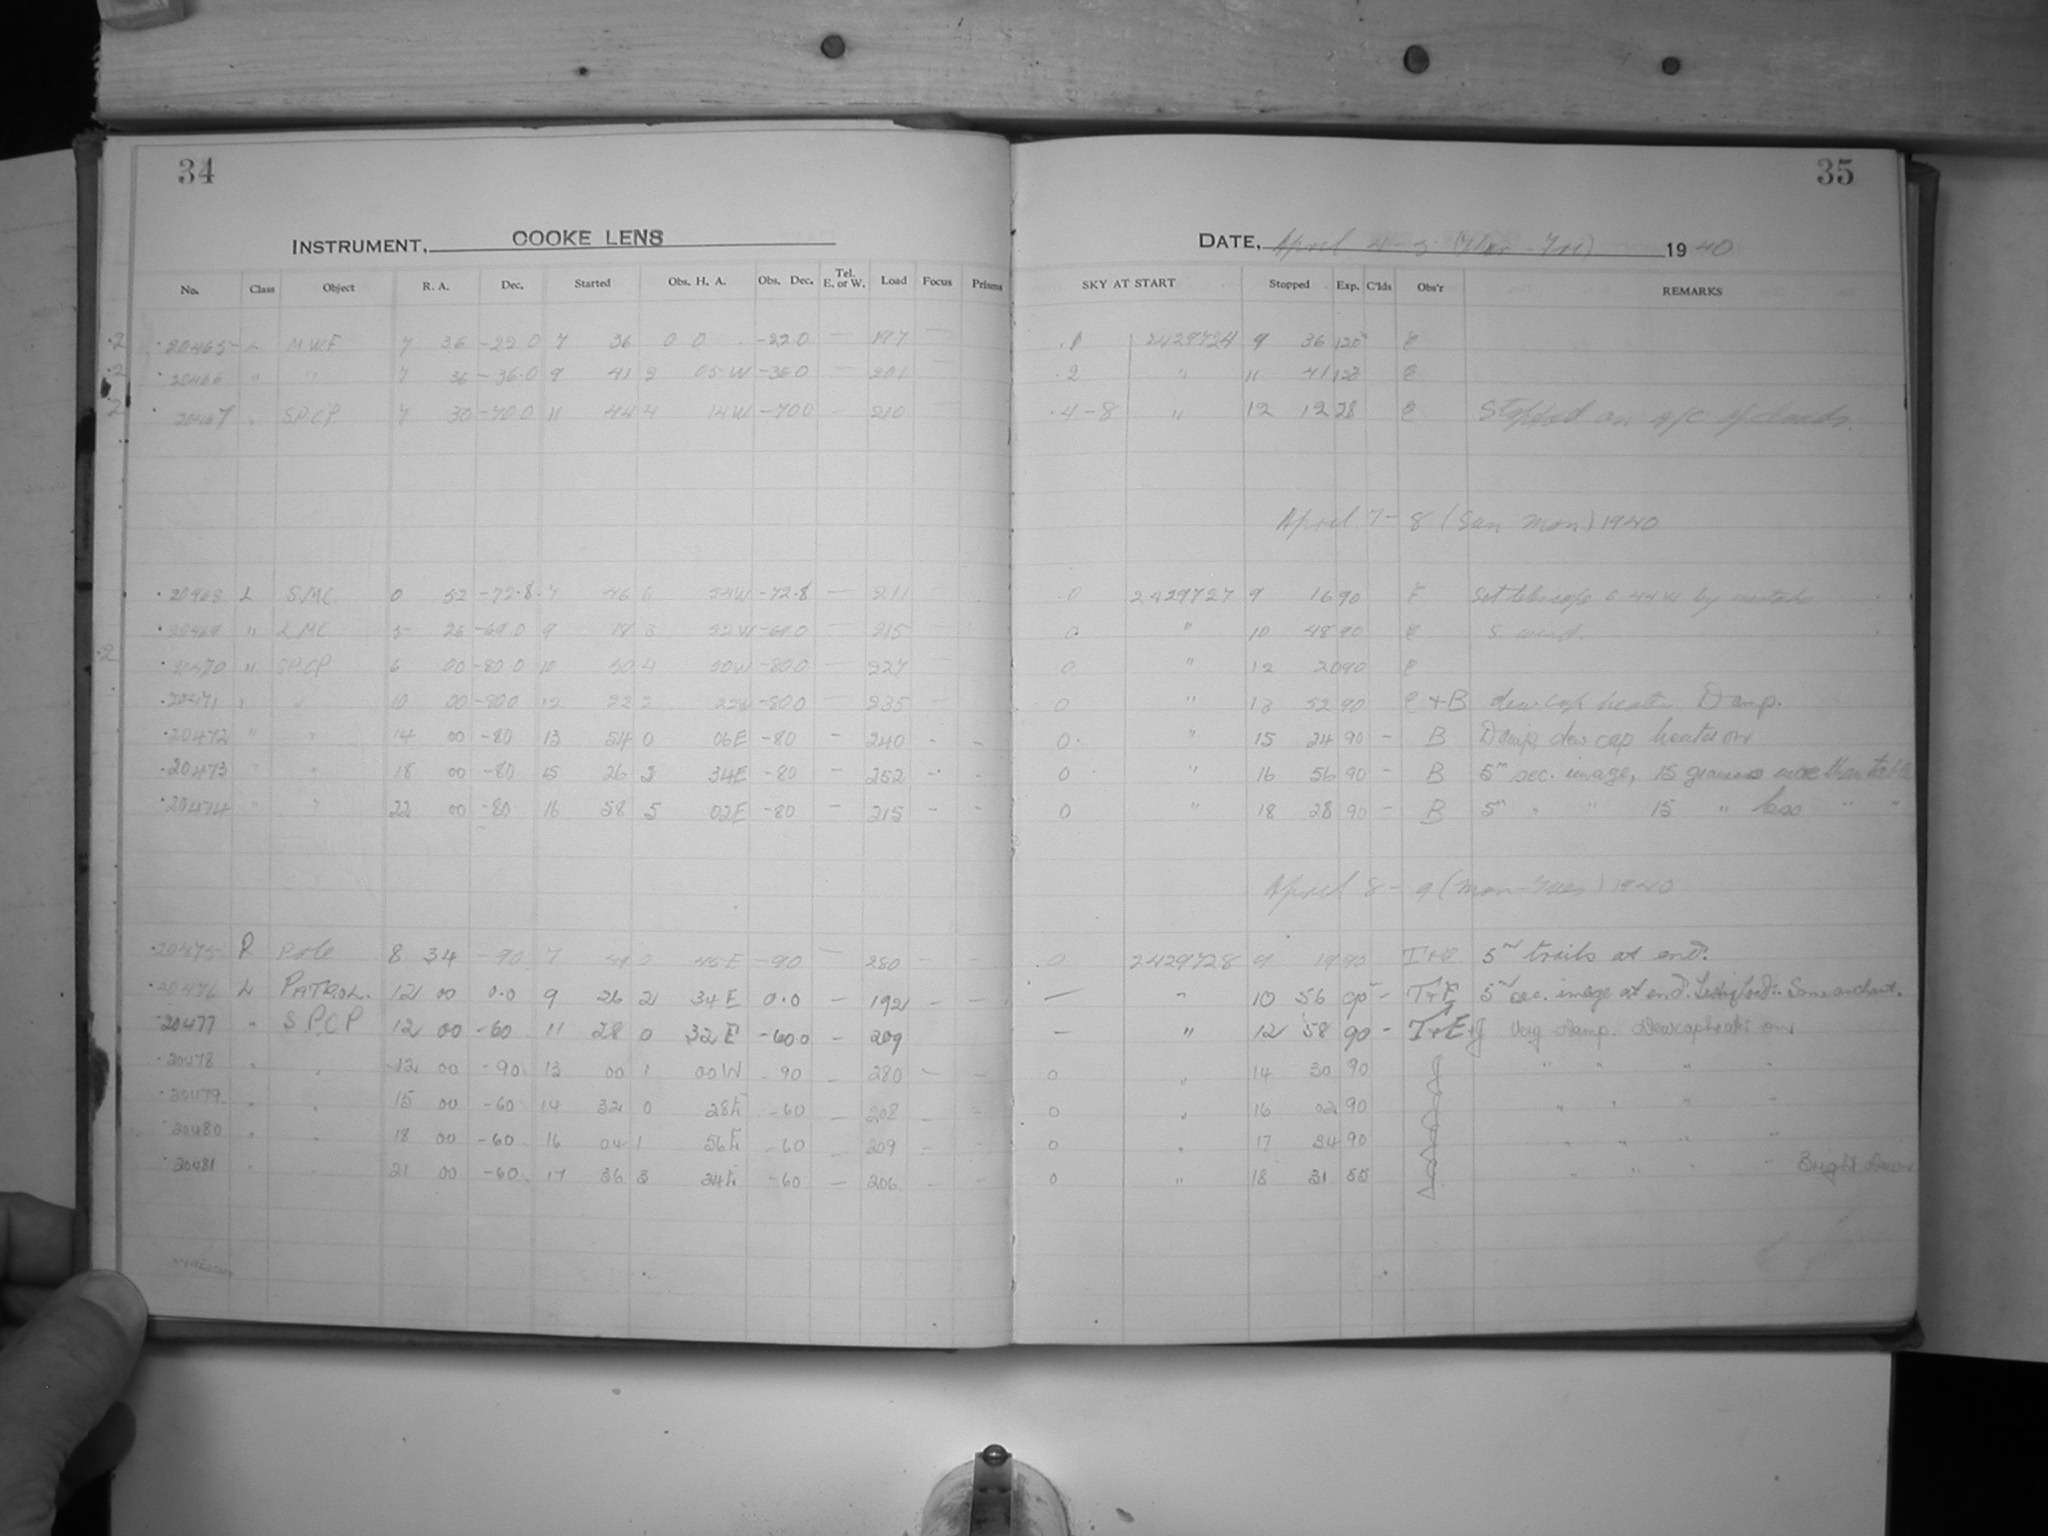 34
INSTRUMENT, COOKE LENS
No. Class Object R. A. Dec. Started Obs. H. A. Obs. Dec. Tel. E. or W. Load Focus Prisms
.2 20465 L M.W.F 7 36 -22 0 7 36 0 0 -22 0 — 197 —
.2 20466 " " 7 36 -36.0 9 41 2 05 W -36.0 — 201
.2 20467 " SPCP 7 30 -70 0 11 44 4 14 W -70 0 — 210
20468 L SMC 0 52 -72.8 7 46 6 54 W -72.8 — 211
20469 " LMC 5 26 -69.0 9 18 3 52 W -69.0 — 215
.2 20470 " SPCP 6 00 -80 0 10 50 4 50 W -80 0 — 227
20471 " " 10 00 -80 0 12 22 2 22 W -80 0 — 235
20472 " " 14 00 -80 13 54 0 06 E -80 — 240 - -
20473 " " 18 00 -80 15 26 2 34 E -80 — 252 - -
20474 " " 22 00 -80 16 58 5 02 E -80 — 215 - -
20475 R Pole 8 34 -90 7 0 45 E -90 — 280 - -
20476 L PATROL. 12 00 0.0 9 26 2 34 E 0.0 — 192 - -
20477 " S.P.C.P 12 00 -60 11 28 0 32 E -60 0 - 209
20478 " " 12 00 -90 13 00 1 00 W -90 — 280 - -
20479 " " 15 00 -60 14 32 0 28 E -60 — 208 -
20480 " " 18 00 -60 16 04 1 56 E -60 — 209 - -
20481 " " 21 00 -60 17 36 3 24 E -60 — 206 - -
35
DATE, April 4-5 (Thur - Fri) 1940
SKY AT START Stopped Exp. C'lds Obs'r REMARKS
.1 2429724 9 36 120 E
.2 " 11 41 120 E
.4-8 " 12 12 28 E Stopped on a/c of clouds.
April 7-8 (Sun Mon) 1940
0 2429727 9 16 90 E Set telescope 6 44 W by mistake
0 " 10 48 90 E S. wind
0 " 12 20 90 E
0 " 13 52 90 E + B dew cap heater Damp.
0 " 15 24 90 - B Damp, dew cap heater on
0 " 16 56 90 - B 5m sec. image, 15 grammes more than
0 " 18 28 90 - B 5m " " 15 " less " "
April 8-9 (Mon-Tues) 1940
0 2429728 9 90 T+E 5m trails at end.
— " 10 56 90 - T+E 5m sec. image at end.
— " 12 58 90 - T+E+J Very damp. Dewcap heater on
0 " 14 30 90 J " " " "
0 " 16 02 90 J " " " "
0 " 17 34 90 J " " " "
0 " 18 31 55 J " " " " Bright Dawn